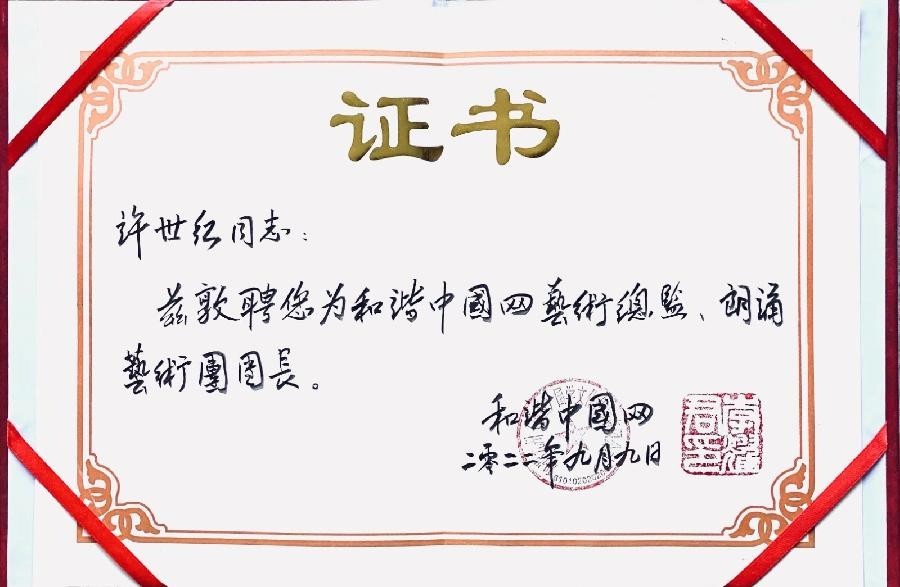 证书
许世红同志：
兹敦聘您为和谐中國网藝術總監、朗誦
藝術團團長。
和谐中國网
二零二二年九月九日